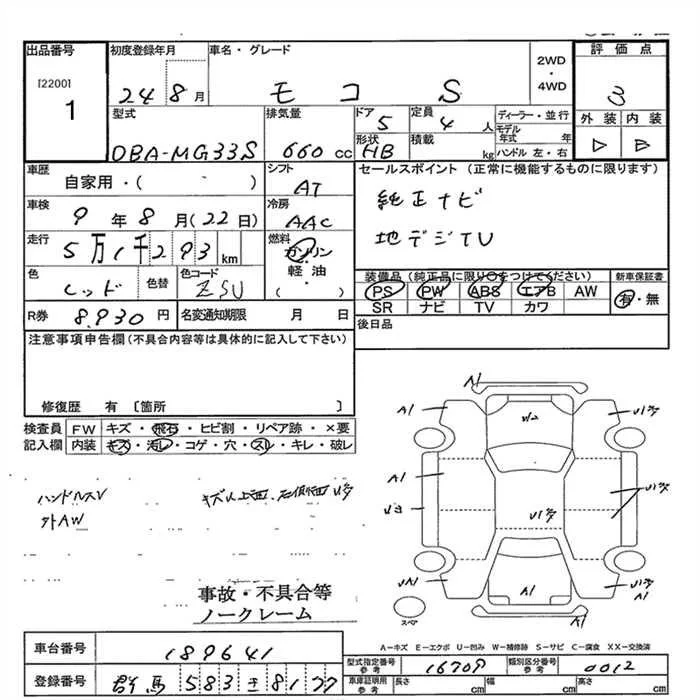 出品番号 初度登録年月 車名・グレード 評価点
[2200]
1
24 8月 モコ S 2WD・4WD 3
型式 排気量 ドア 定員 ディーラー・並行 外装 内装
5 4人 モデル年式 年
DBA-MG33S 660cc 形状 HB 積載 kg ハンドル 左・右
車歴 シフト セールスポイント (正常に機能するものに限ります)
自家用・( ) AT
純正ナビ
車検 冷房
9年8月(22日) AAC
地デジTV
走行 燃料
5万1千293km ガソリン
軽油
( ・ )
色 色替 色コード 装備品(純正品に限り○をつけてください) 新車保証書
レッド ZSU PS PW ABS エアB AW 有・無
SR ナビ TV カワ
R券 8,930円 名変通知期限 月 日 後日品
注意事項申告欄(不具合内容等は具体的に記入して下さい)
修復歴 有 〔箇所 〕
検査員 FW キズ・飛石・ヒビ割・リペア跡・×要
記入欄 内装 キズ・汚レ・コゲ・穴・スレ・キレ・破レ
A1
A1
W2
A1
A1
A1
ハンドルスレ
外AW
スペア
事故・不具合等
ノークレーム
A-キズ E-エクボ U-凹み W-補修跡 S-サビ C-腐食 XX-交換済
車台番号 189641
型式指定番号 参考 16709 類別区分番号 参考 0012
登録番号 群馬 583 8177
車庫証明用 参考 長さ cm 幅 cm 高さ cm